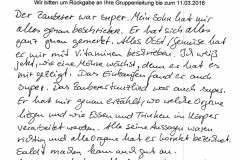 Wir bitten um Rückgabe an Ihre Gruppenleitung bis zum 11.03.2016
Der Zauberer war super. Mein Sohn hat mir
alles genau beschrieben. Er hat sich alles
ganz genau gemerkt. Alles Obst/Gemüse hat
er mir mit Vitaminen beschrieben. Ich weiß
jetzt, wie eine Möhre wächst, denn er hat es
mir gezeigt. Das Einkaufen fand er auch
super. Das Zauberlied war auch super. Er
hat mir genau erzählt, wo welche Organe
liegen und wie Essen und Trinken im Körper
verarbeitet werden. Alle seine Aussagen waren
richtig und alle Organe hat er korrekt bezeichnet.
Salat machen kann er auch gut